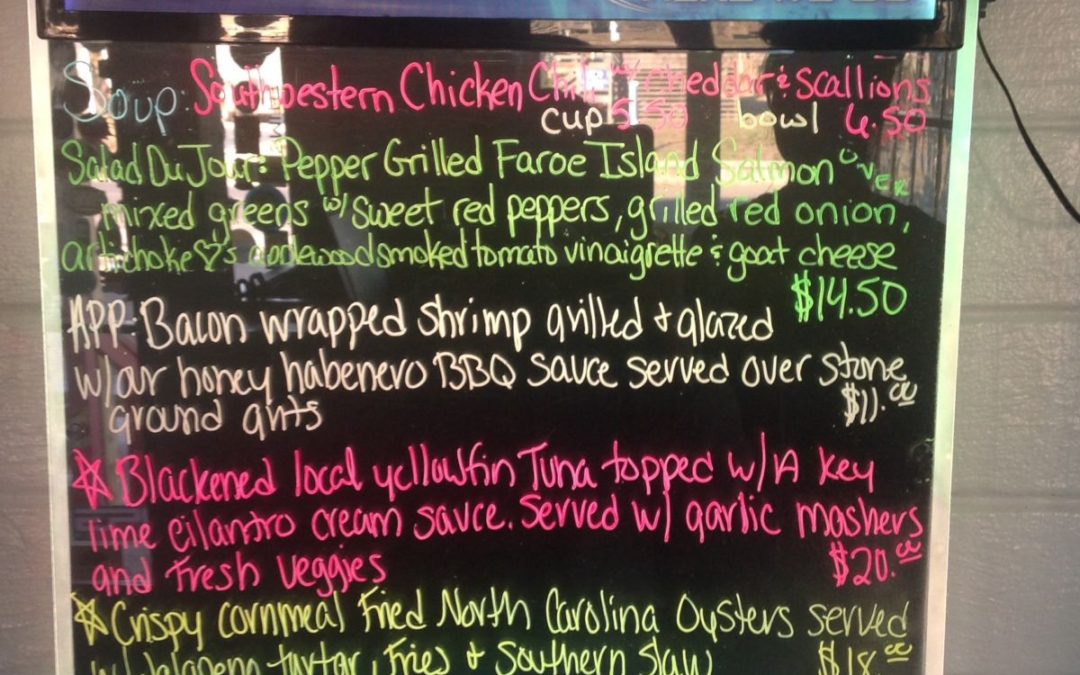 Soup: Southwestern Chicken Chili w/ cheddar & scallions
cup 5.50 bowl 6.50
Salad Du Jour: Pepper Grilled Faroe Island Salmon OVER
mixed greens w/ sweet red peppers, grilled red onion,
artichoke ♡'s applewood smoked tomato vinaigrette & goat cheese
$14.50
APP Bacon wrapped shrimp grilled + glazed
w/our honey habenero BBQ sauce served over stone
ground grits $11.00
☆ Blackened local yellowfin Tuna topped w/A key
lime cilantro cream sauce. Served w/ garlic mashers
and fresh veggies $20.00
☆ Crispy cornmeal Fried North Carolina Oysters served
w/ Jalapeno tartar, Fries + Southern Slaw $18.00